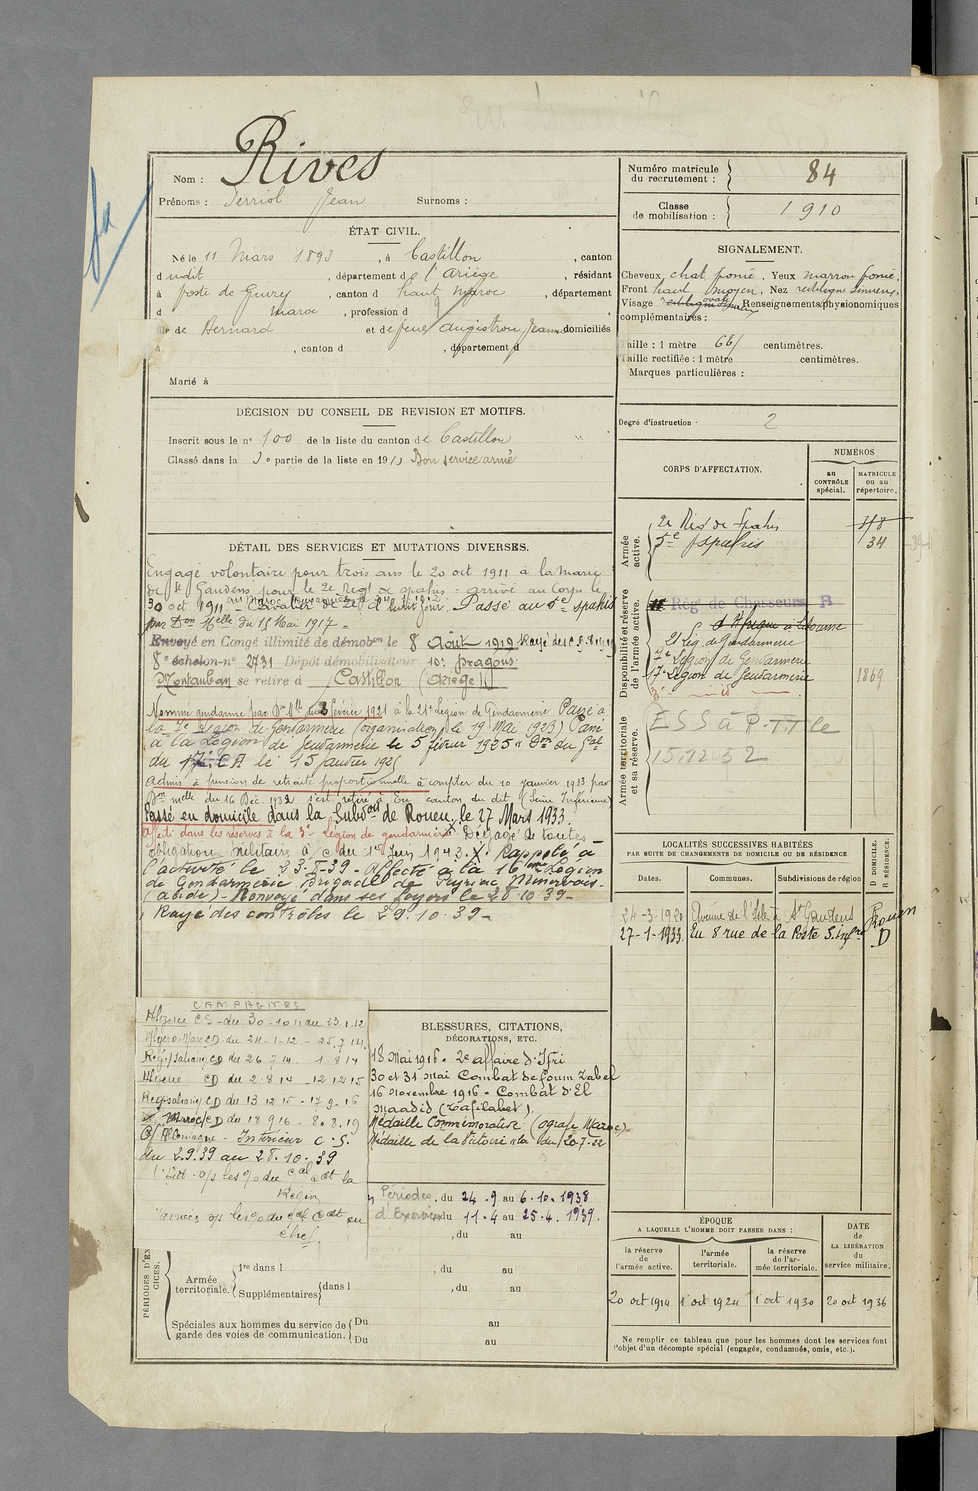 Nom : Rives
Prénoms : Jean Surnoms :
ÉTAT CIVIL.
Né le 11 Mars 1893, à Castillon, canton
dudit, département de l'Ariège, résidant
à poste de, canton d haut Maroc, département
d Maroc, profession d
de Bernard et de feue Augistrou Jeanne domiciliés
à, canton d, département d
Marié à
DÉCISION DU CONSEIL DE REVISION ET MOTIFS.
Inscrit sous le n° 100 de la liste du canton de Castillon
Classé dans la 3e partie de la liste en 191 Bon service armé
DÉTAIL DES SERVICES ET MUTATIONS DIVERSES.
Engagé volontaire pour trois ans le 20 oct 1911 à la mairie
de St Gaudens pour le 2e Regt de spahis = arrivé au corps le
30 oct 1911 et Cavalier de 2e cl ledit jour. Passé au 5e spahis
par Don Melle du 15 Mai 1917 -
Envoyé en Congé illimité de démobon le 8 Août 1919 Rayé des C.
8e échelon-n° 2731 Dépôt démobilisateur 10e Dragons
Montauban se retire à Castillon (Ariège)
Nommé gendarme par Don Mlle du 3 février 1921 à la 21e Légion de Gendarmerie Passé à
la 7e Légion de Gendarmerie (organisation) le 19 Mai 1923) Passé
à la Légion de Gendarmerie le 5 février 1925 Don du Gal
du 17e CA le 15 janvier 1925
Admis à pension de retraite proportionnelle à compter du 10 janvier 1933 par
Don melle du 16 Déc. 1932 s'est retiré à Eu canton du dit (Seine Inférieure)
Passé en domicile dans la Subdon de Rouen, le 27 Mars 1933.
Affecté dans les réserves à la 3e Légion de gendarmerie. Dégagé de toutes
obligations militaires à c du 1er Juin 1943. X. Rappelé à
l'activité le 23-I-39 - Affecté à la 16ème Légion
de Gendarmerie Brigade de Peyriac Minervois-
(Aude) - Renvoyé dans ses foyers le 28-10-39-
Rayé des contrôles le 29.10.39-
CAMPAGNES
Algérie CS - du 30-10-11 au 23.1.12
Algéro-Maroc CD du 24-1-12 - 25.7.14
Reg. sahariennes CD du 26 7 14 - 1 8 14
Algérie CD du 2-8-14 - 12 12 15
Reg. sahariennes CD du 13 12 15 - 17-9-16
Maroc CD du 18 9 16 - 8.8.19
C/ Allemagne - Intérieur C.S.
du 2.9.39 au 28.10.39
Région
chef.
BLESSURES, CITATIONS,
DÉCORATIONS, ETC.
18 Mai 1916 - 2e affaire d'Ifri
30 et 31 Mai Combat de foum Zabel
16 novembre 1916 - Combat d'El
Maadid (Tafilalet).
Médaille Commémorative (agrafe Maroc).
Médaille de la Victoire du 20-7-22
Périodes, du 24.9 au 6.10.1938
d'Exercices du 11.4 au 25.4.1939.
, du au
PÉRIODES D'EX
CICES.
Armée
territoriale.
1re dans l, du au
Supplémentaires dans l, du au
Spéciales aux hommes du service de
garde des voies de communication.
Du au
Du au
Numéro matricule
du recrutement : 84
Classe
de mobilisation : 1910
SIGNALEMENT.
Cheveux chat foncé. Yeux marron foncé,
Front haut moyen, Nez rectiligne sinueux,
Visage ovale Renseignements physionomiques
complémentaires :
Taille : 1 mètre 66 centimètres.
Taille rectifiée : 1 mètre centimètres.
Marques particulières :
Degré d'instruction : 2
CORPS D'AFFECTATION.
NUMÉROS
au
CONTRÔLE
spécial.
MATRICULE
ou au
répertoire.
Armée
active.
2e Régt de Spahis
5e Spahis 34
Disponibilité et réserve
de l'armée active.
Rég. de Chasseurs B
d'Afrique à Libourne
21 Lég. de Gendarmerie
7e Légion de Gendarmerie
17e Légion de Gendarmerie 1869
3e
Armée territoriale
et sa réserve.
ESS à P.TT le
15.12.52
LOCALITÉS SUCCESSIVES HABITÉES
PAR SUITE DE CHANGEMENTS DE DOMICILE OU DE RÉSIDENCE
Dates. Communes. Subdivisions de région D. DOMICILE. R. RÉSIDENCE.
24-3-1920 Avenue de l'Isle à St Gaudens
27-1-1933 Eu 8 rue de la Poste S. infre Rouen D
ÉPOQUE
A LAQUELLE L'HOMME DOIT PASSER DANS :
la réserve
de
l'armée active.
l'armée
territoriale.
la réserve
de l'ar-
mée territoriale.
DATE
de
LA LIBÉRATION
du
service militaire.
20 oct 1914 1 oct 1924 1 oct 1930 20 oct 1936
Ne remplir ce tableau que pour les hommes dont les services font
l'objet d'un décompte spécial (engagés, condamnés, omis, etc.).